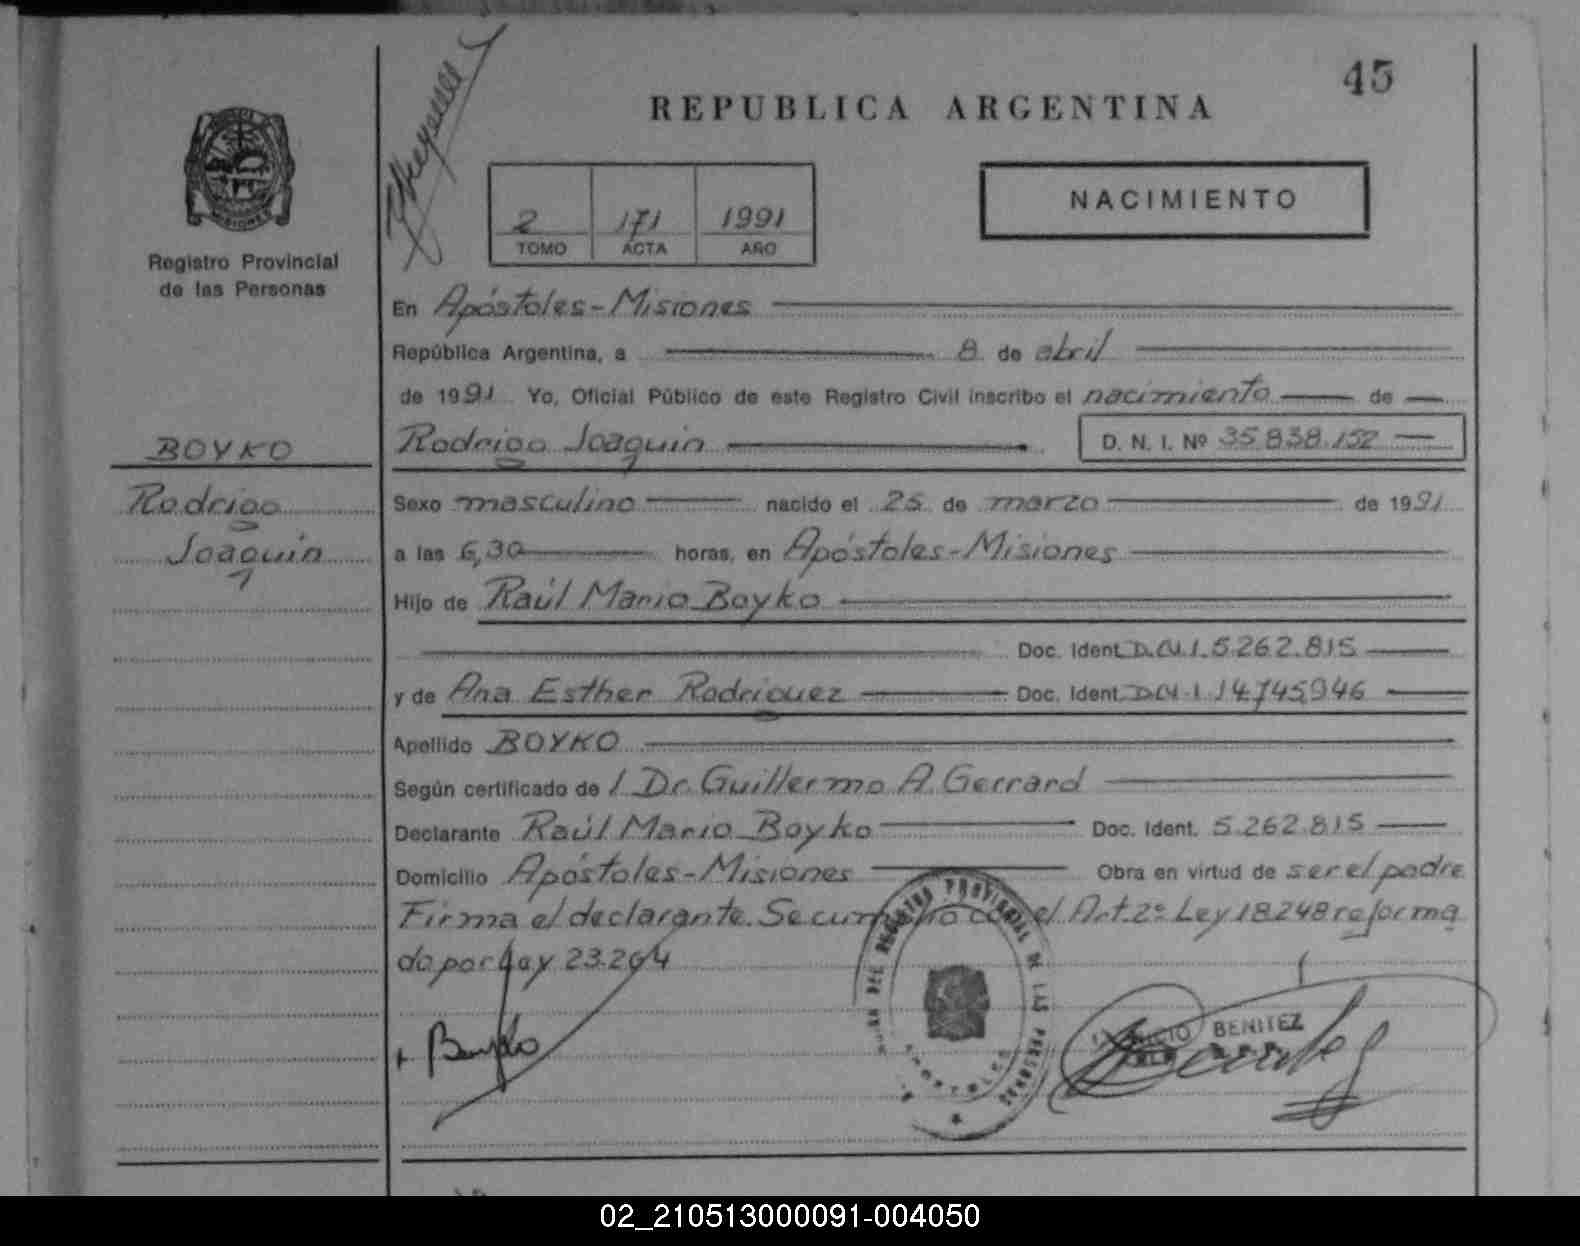 45
REPUBLICA ARGENTINA
NACIMIENTO
2 171 1991
TOMO ACTA AÑO
MISIONES
Registro Provincial
de las Personas
En Apóstoles-Misiones
República Argentina, a 8 de abril
de 1991 Yo, Oficial Público de este Registro Civil inscribo el nacimiento de
BOYKO
Rodrigo Joaquin D. N. I. Nº 35.838.152
Rodrigo
Joaquin
Sexo masculino nacido el 25 de marzo de 1991
a las 6,30 horas, en Apóstoles-Misiones
Hijo de Raúl Mario Boyko
Doc. Ident. 5.262.815
y de Ana Esther Rodriguez Doc. Ident. 14.745.946
Apellido BOYKO
Según certificado de l Dr. Guillermo A. Gerrard
Declarante Raúl Mario Boyko Doc. Ident. 5.262.815
Domicilio Apóstoles-Misiones Obra en virtud de ser el padre
Firma el declarante. Se cumplio con el Art. 2º Ley 18.248 reforma
do por Ley 23.264
Boyko
REGISTRO PROVINCIAL DE LAS PERSONAS
APOSTOLES
BENITEZ
02_210513000091-004050